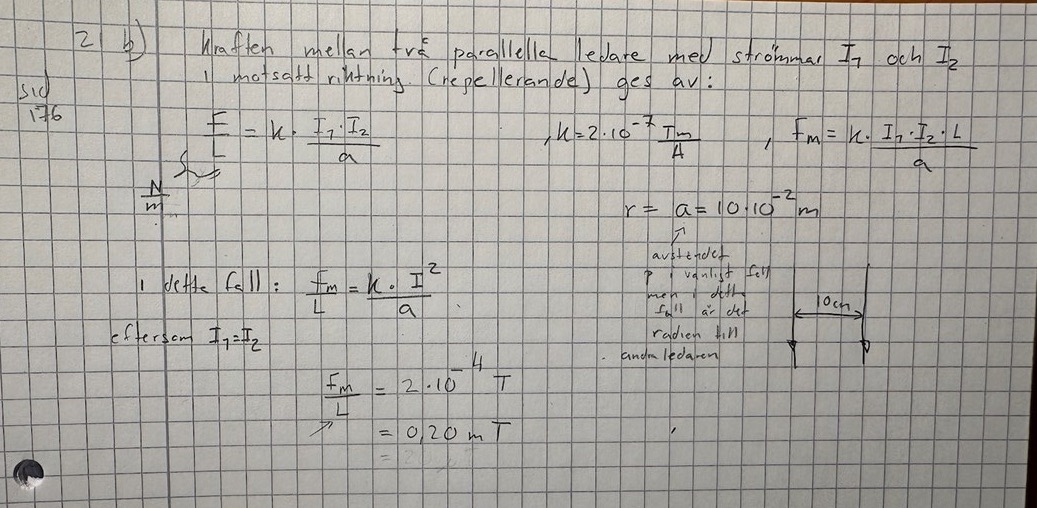 2 b) Kraften mellan två parallella ledare med strömmar I₁ och I₂
i motsatt riktning (repellerande) ges av:
sid
176
F/L = k · I₁·I₂/a , k = 2·10⁻⁷ Tm/A , Fm = k · I₁·I₂·L/a
N/m
r = a = 10·10⁻² m
avståndet
i vanligt fall
men i detta
fall är det
radien till
andra ledaren
10cm
i dette fall : Fm/L = k · I²/a
eftersom I₁=I₂
Fm/L = 2·10⁻⁴ T
= 0,20 m T